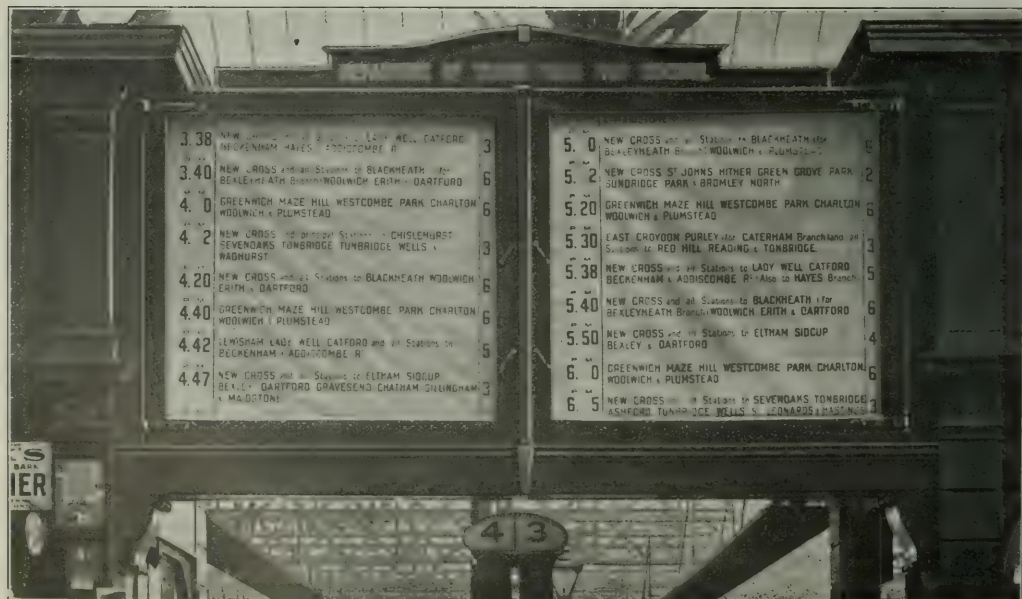 3.38 NEW WELL CATFORD
BECKENHAM HAYES ADDISCOMBE Rᴅ 3
3.40 NEW CROSS and all Stations to BLACKHEATH (for
BEXLEYHEATH Branch) WOOLWICH ERITH & DARTFORD 6
4. 0 GREENWICH MAZE HILL WESTCOMBE PARK CHARLTON
WOOLWICH & PLUMSTEAD 6
4. 2 NEW CROSS and principal Stations to CHISLEHURST
SEVENOAKS TONBRIDGE TUNBRIDGE WELLS &
WADHURST 3
4.20 NEW CROSS and all Stations to BLACKHEATH WOOLWICH
ERITH & DARTFORD 6
4.40 GREENWICH MAZE HILL WESTCOMBE PARK CHARLTON
WOOLWICH & PLUMSTEAD 6
4.42 LEWISHAM LADY WELL CATFORD and all Stations to
BECKENHAM & ADDISCOMBE Rᴅ 5
4.47 NEW CROSS and all Stations to ELTHAM SIDCUP
BEXLEY DARTFORD GRAVESEND CHATHAM GILLINGHAM
& MAIDSTONE 3
5. 0 NEW CROSS and all Stations to BLACKHEATH (for
BEXLEYHEATH Branch) WOOLWICH & PLUMSTEAD 6
5. 2 NEW CROSS Sᵀ JOHNS HITHER GREEN GROVE PARK
SUNDRIDGE PARK & BROMLEY NORTH 2
5.20 GREENWICH MAZE HILL WESTCOMBE PARK CHARLTON
WOOLWICH & PLUMSTEAD 6
5.30 EAST CROYDON PURLEY (for CATERHAM Branch) and all
Stations to RED HILL READING & TONBRIDGE 3
5.38 NEW CROSS and all Stations to LADY WELL CATFORD
BECKENHAM & ADDISCOMBE Rᴅ (Also to HAYES Branch) 5
5.40 NEW CROSS and all Stations to BLACKHEATH (for
BEXLEYHEATH Branch) WOOLWICH ERITH & DARTFORD 6
5.50 NEW CROSS and all Stations to ELTHAM SIDCUP
BEXLEY & DARTFORD 4
6. 0 GREENWICH MAZE HILL WESTCOMBE PARK CHARLTON
WOOLWICH & PLUMSTEAD 6
6. 5 NEW CROSS and all Stations to SEVENOAKS TONBRIDGE
ASHFORD TUNBRIDGE WELLS Sᵀ LEONARDS & HASTINGS 3
'S
BARK
IER
4 3